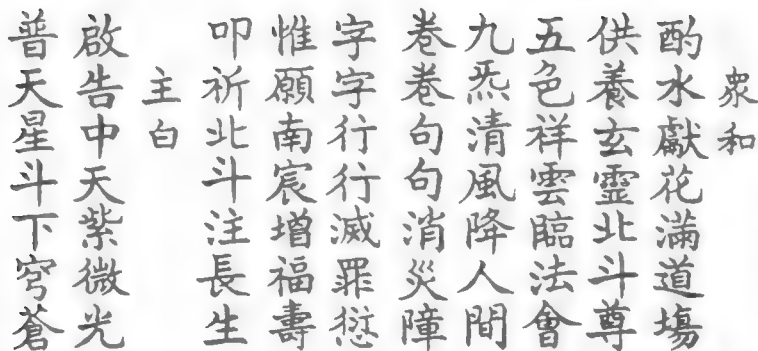 衆和
酌水獻花滿道塲
供養玄靈北斗尊
五色祥雲臨法會
九炁清風降人間
卷卷句句消災障
字字行行滅罪愆
惟願南宸增福壽
叩祈北斗注長生
主白
啟告中天紫微光
普天星斗下穹蒼